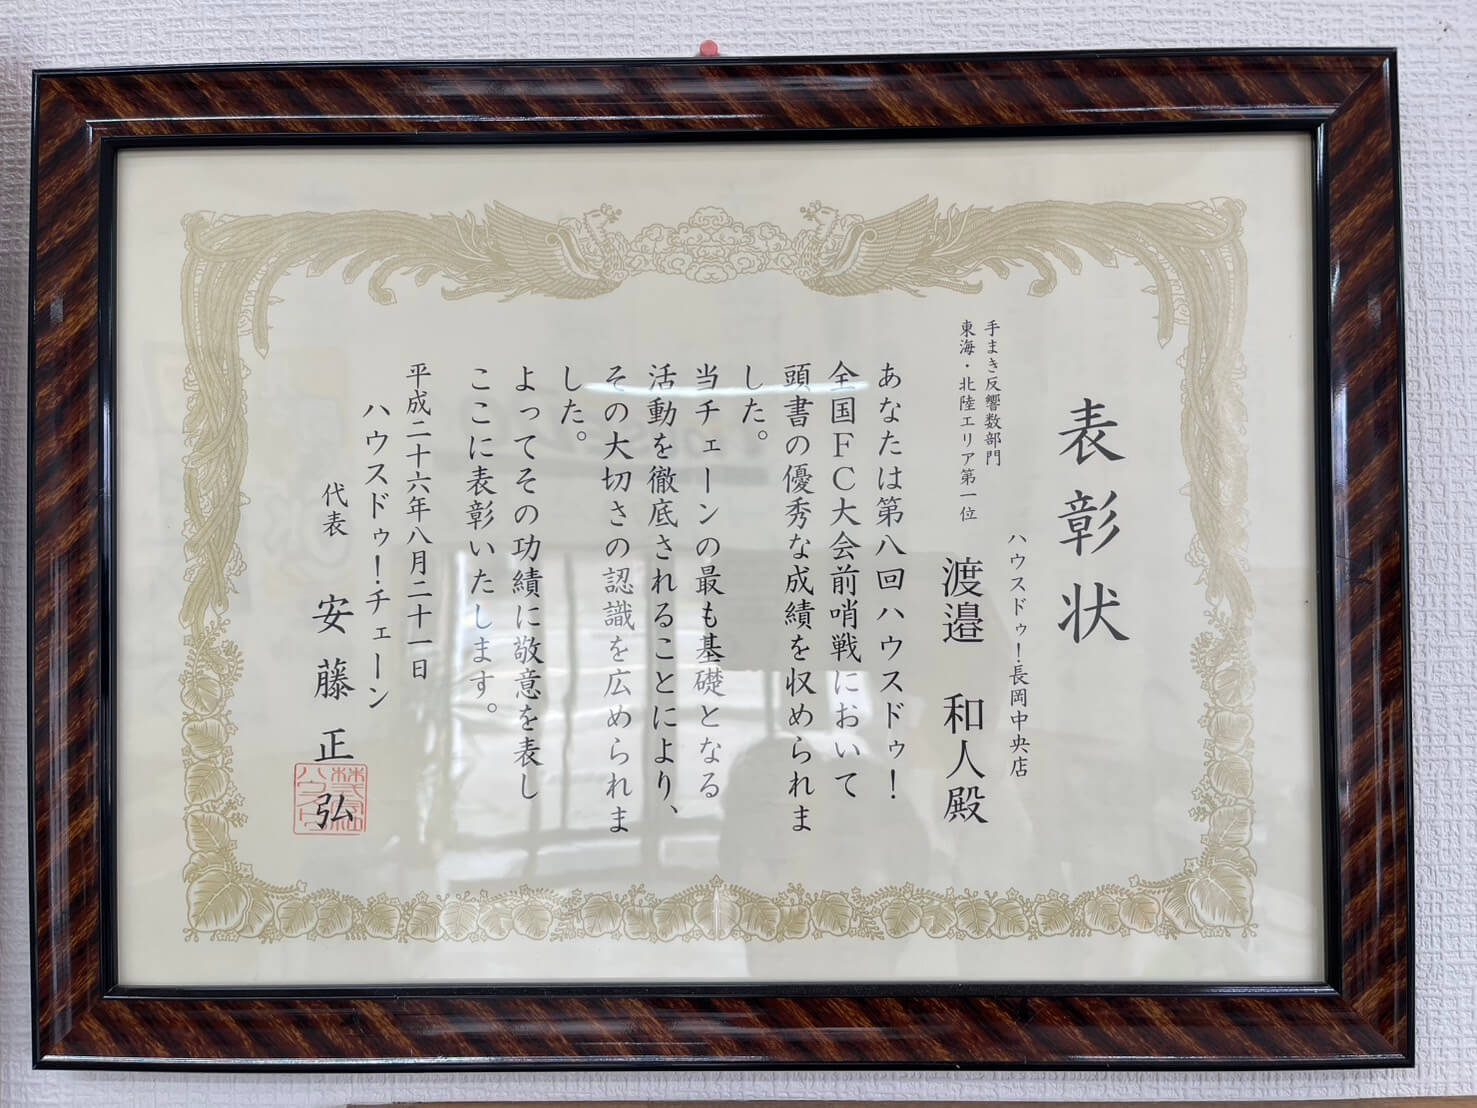 表彰状
手まき反響数部門
東海・北陸エリア第一位
ハウスドゥ！長岡中央店
渡邉 和人殿
あなたは第八回ハウスドゥ！
全国ＦＣ大会前哨戦において
頭書の優秀な成績を収められま
した。
当チェーンの最も基礎となる
活動を徹底されることにより、
その大切さの認識を広められま
した。
よってその功績に敬意を表し
ここに表彰いたします。
平成二十六年八月二十一日
ハウスドゥ！チェーン
代表 安藤 正弘